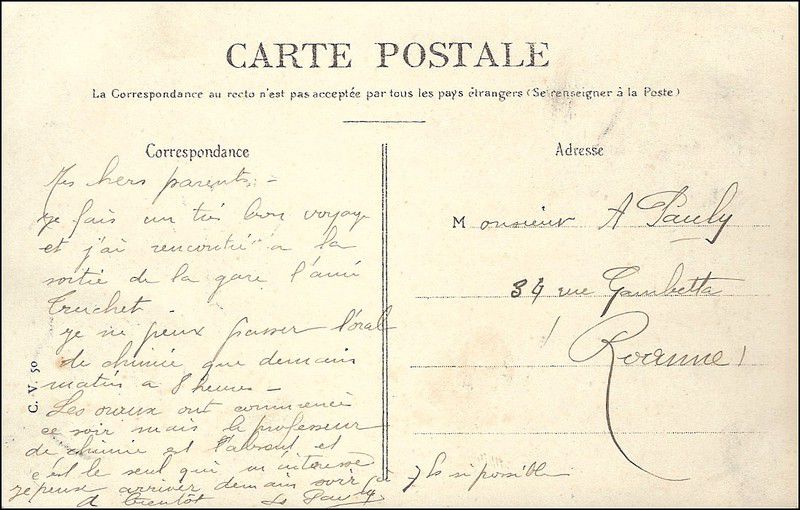 CARTE POSTALE
La Correspondance au recto n'est pas acceptée par tous les pays étrangers (Se renseigner à la Poste)
Correspondance
Mes hers parents -
je fais un très bon voyage
et j'ai rencontré a la
sortie de la gare l'ami
Truchet.
je ne peux passer l'oral
de chimie que demain
matin a 8 heures -
Les oraux ont commencé
ce soir mais le professeur
de chimie est l'absent et
c'est le seul qui m'interesse
je peux arriver demain soir à 7 hs si possible
A bientôt
Pauly
C. V. 50
Adresse
Monsieur A Pauly
34 rue Gambetta
Roanne